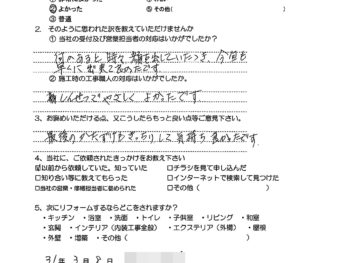 ② よかった ⑤ その他(
③ 普通
2. そのように思われた訳を教えていただけませんか
① 当社の受付及び営業担当者の対応はいかがでしたか?
何かあると時々顔を出していただき、今回も
早くに出来て良かったです。
② 施工時の工事職人の対応はいかがでしたか?
しんせつでやさしく よかったです。
3、お褒めいただける点、又こうしたらもっと良い点等ご意見下さい。
最後のかたずけもきっちりして気持ち良かったです。
4、当社に、ご依頼されたきっかけをお教え下さい
☑以前から依頼していた。知っていた □チラシを見て申し込んだ
□知り合い等に教えてもらった □インターネットで検索して見つけた
□当社の営業・現場担当者に勧められた □その他(
5、次にリフォームするならどこをされますか?
・キッチン ・浴室 ・洗面 ・トイレ ・子供室 ・リビング ・和室
・玄関 ・インテリア(内装工事全般) ・エクステリア(外構) ・屋根
・外壁 ・増築 ・その他(
31年3月8日